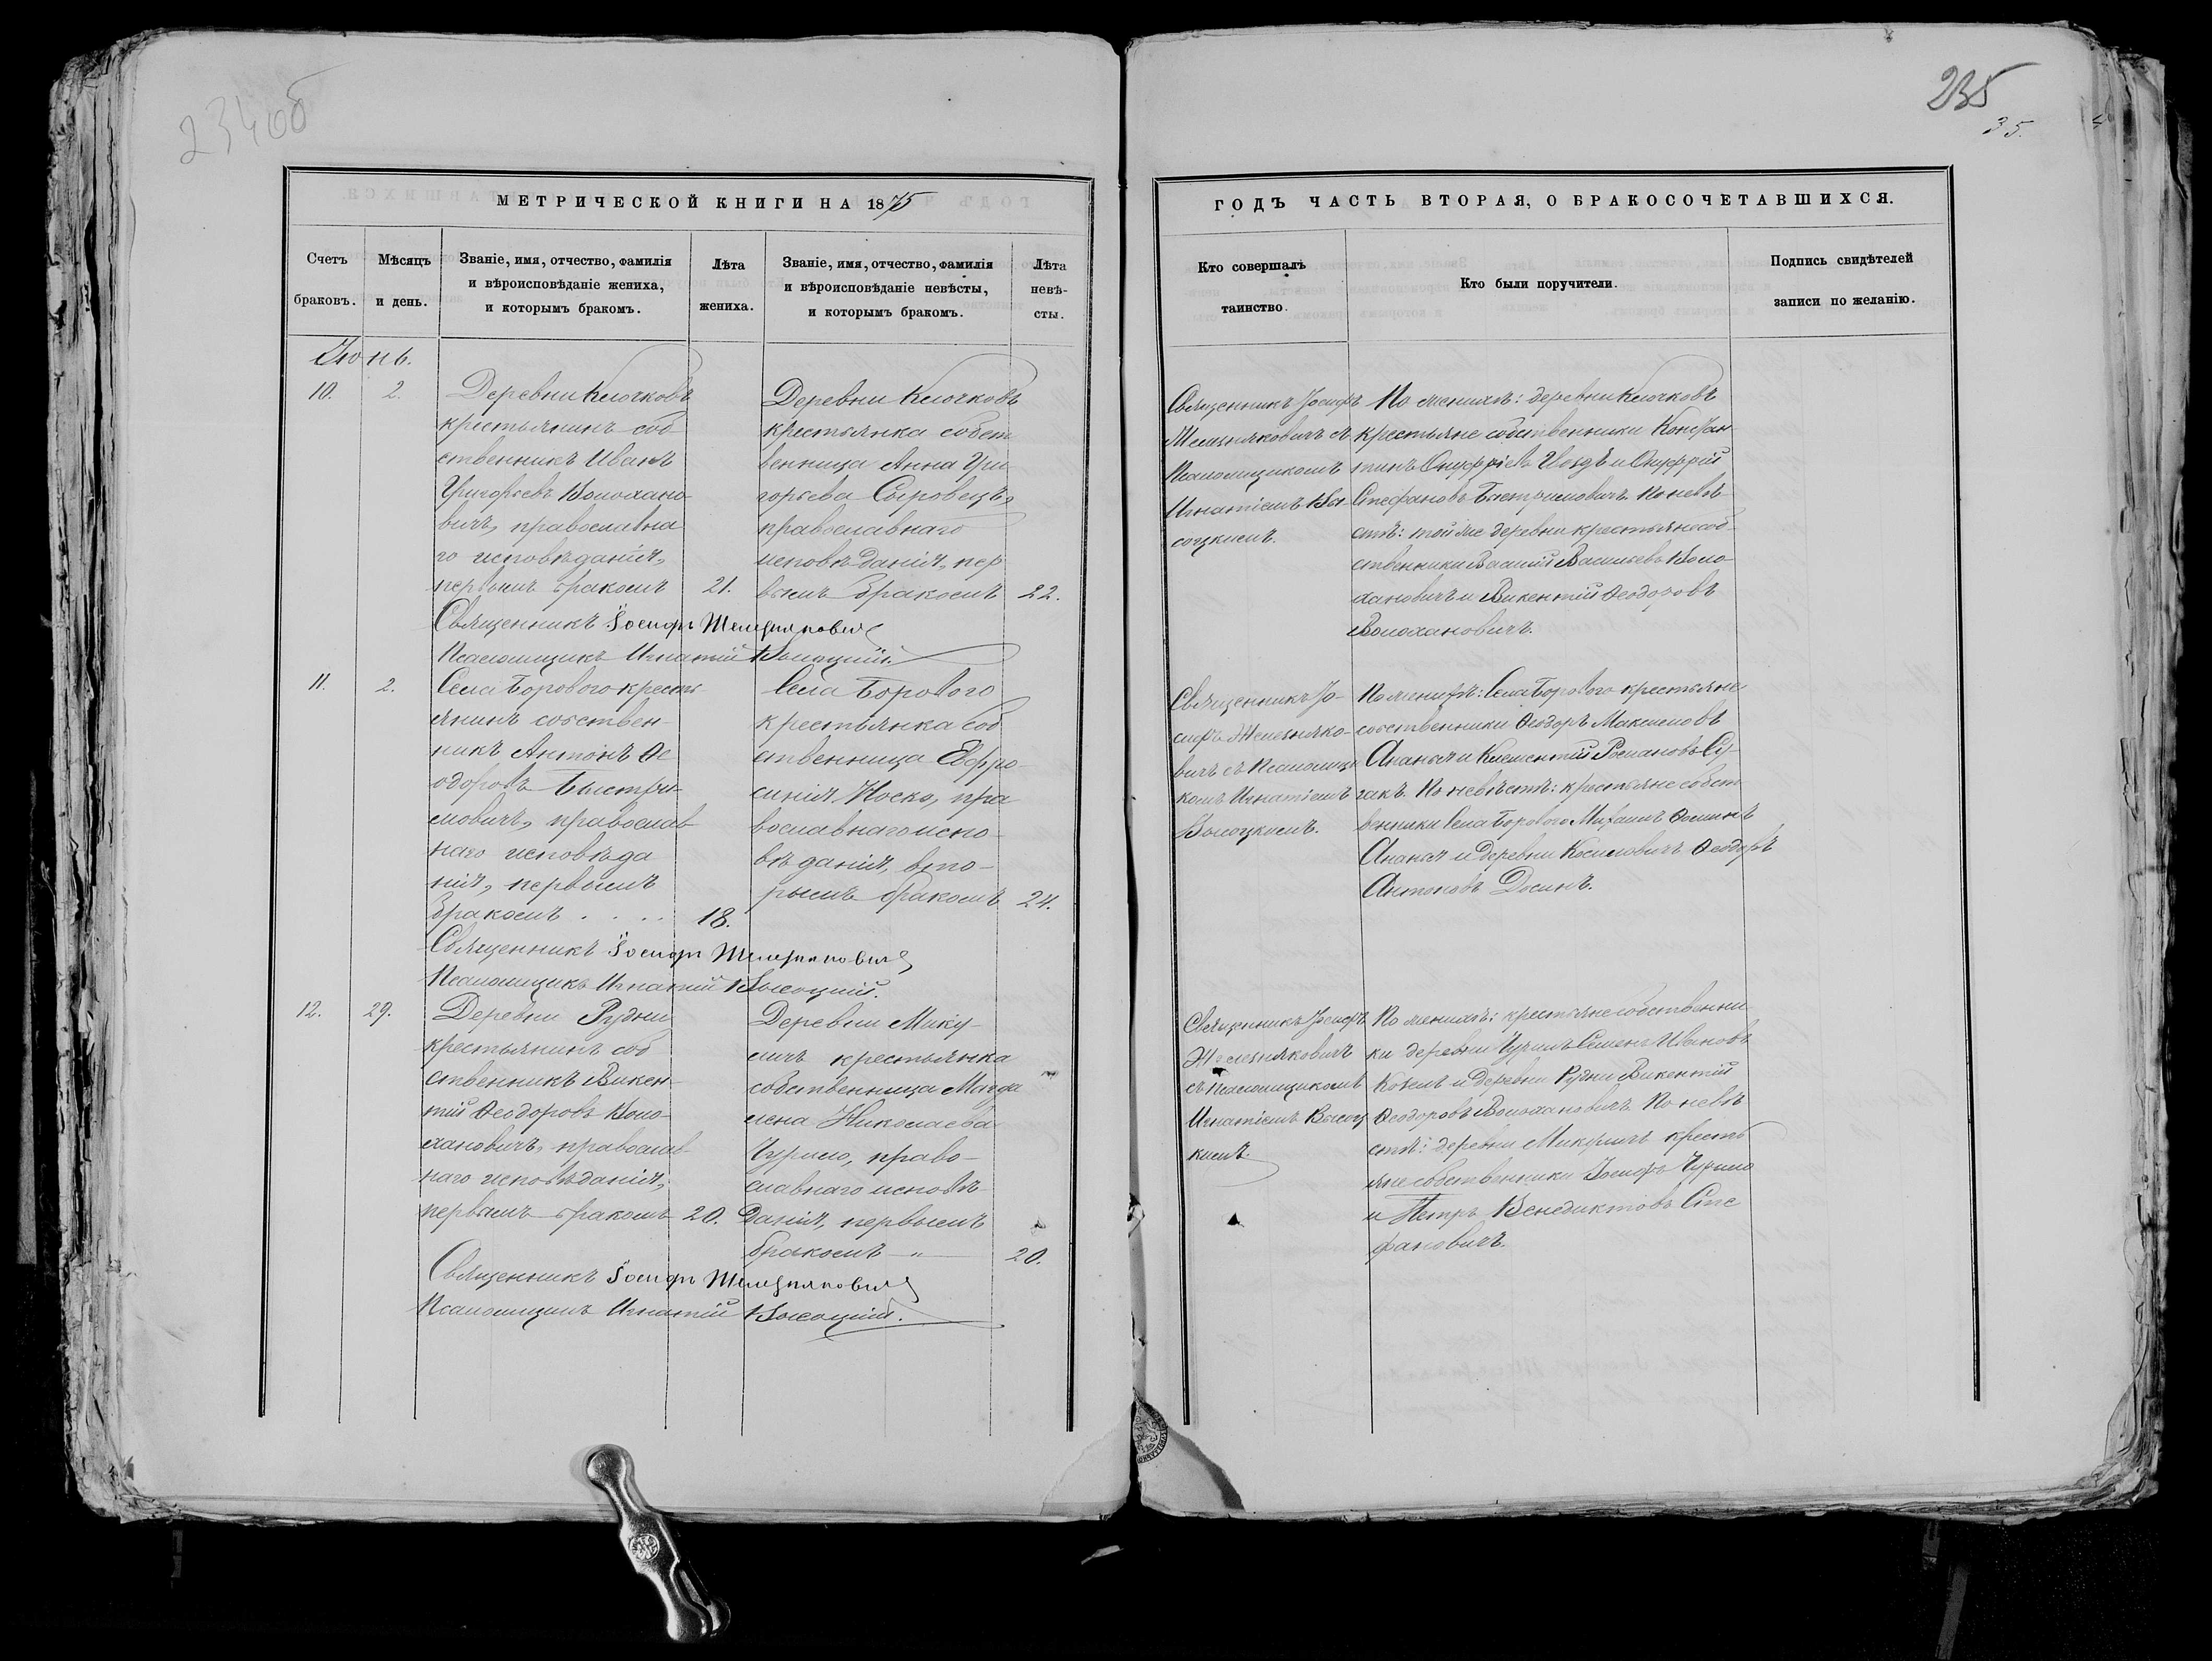 234об
МЕТРИЧЕСКОЙ КНИГИ НА 1875
Счетъ браковъ.
Мѣсяцъ и день.
Званіе, имя, отчество, фамилія
и вѣроисповѣданіе жениха,
и которымъ бракомъ.
Лѣта
жениха.
Званіе, имя, отчество, фамилія
и вѣроисповѣданіе невѣсты,
и которымъ бракомъ.
Лѣта
невѣ-
сты.
Іюнь.
10.
2.
Деревни Клочковъ
крестьянинъ соб-
ственникъ Иванъ
Григорьевъ Волохано-
вичъ, православна
го исповѣданія,
первымъ бракомъ
21.
Деревни Клочковъ
крестьянка собст
венница Анна Гри
горьева Сыровецъ,
православнаго
исповѣданія, пер
вымъ бракомъ
22.
Священникъ Іосифъ Железняковичъ
Псаломщикъ Игнатій Высоцкій.
11.
2.
Села Борового кресть
янинъ собствен-
никъ Антонъ Ѳе
одоровъ Быстри-
мовичъ, православ
наго исповѣда
нія, первымъ
бракомъ . . . .
18.
Села Борового
крестьянка соб
ственница Евфро-
синія Носко, пра
вославнаго испо-
вѣданія, вто-
рымъ бракомъ
24.
Священникъ Іосифъ Железняковичъ
Псаломщикъ Игнатій Высоцкій.
12.
29.
Деревни Рудни
крестьянинъ соб
ственникъ Викен-
тій Ѳеодоровъ Воло-
хановичъ, православ-
наго исповѣданія,
первымъ бракомъ
20.
Деревни Мику-
личъ крестьянка
собственница Магда
лена Николаева
Чурило, право-
славнаго исповѣ-
данія, первымъ
бракомъ "
20.
Священникъ Іосифъ Железняковичъ
Псаломщикъ Игнатій Высоцкій.
235
35.
ГОДЪ ЧАСТЬ ВТОРАЯ, О БРАКОСОЧЕТАВШИХСЯ.
Кто совершалъ
таинство.
Кто были поручители.
Подпись свидѣтелей
записи по желанію.
Священникъ Іосифъ
Железняковичъ съ
Псаломщикомъ
Игнатіемъ Вы-
соцкимъ.
По женихѣ: деревни Клочковъ
крестьяне собственники Констан-
тинъ Онуфріевъ Гвоздь и Онуфрій
Стефановъ Быстримовичъ. По невѣ-
стѣ: той же деревни крестьяне соб-
ственники Васильевъ Воло-
хановичъ и Викентій Ѳеодоровъ
Волохановичъ.
Священникъ Іо-
сифъ Железняко-
вичъ съ Псаломщи
комъ Игнатіемъ
Высоцкимъ.
По женихѣ: Села Борового крестьяне
собственники Ѳеодоръ Максимовъ
Ананьи и Климентій Романовъ
По невѣстѣ: крестьяне собст
венники Села Борового Михаилъ Ѳоминъ
Ананьи и деревни Ѳеодоръ
Антоновъ
Священникъ Іосифъ
Железняковичъ
съ Псаломщикомъ
Игнатіемъ Высоц
кимъ.
По женихѣ: крестьяне собственни-
ки деревни Семенъ Ивановъ
и деревни Рудни Викентій
Ѳеодоровъ Волохановичъ. По невѣ
стѣ: деревни Микуличъ кресть
яне собственники Іосифъ Чурило
и Петръ Венедиктовъ Сте
фановичъ.